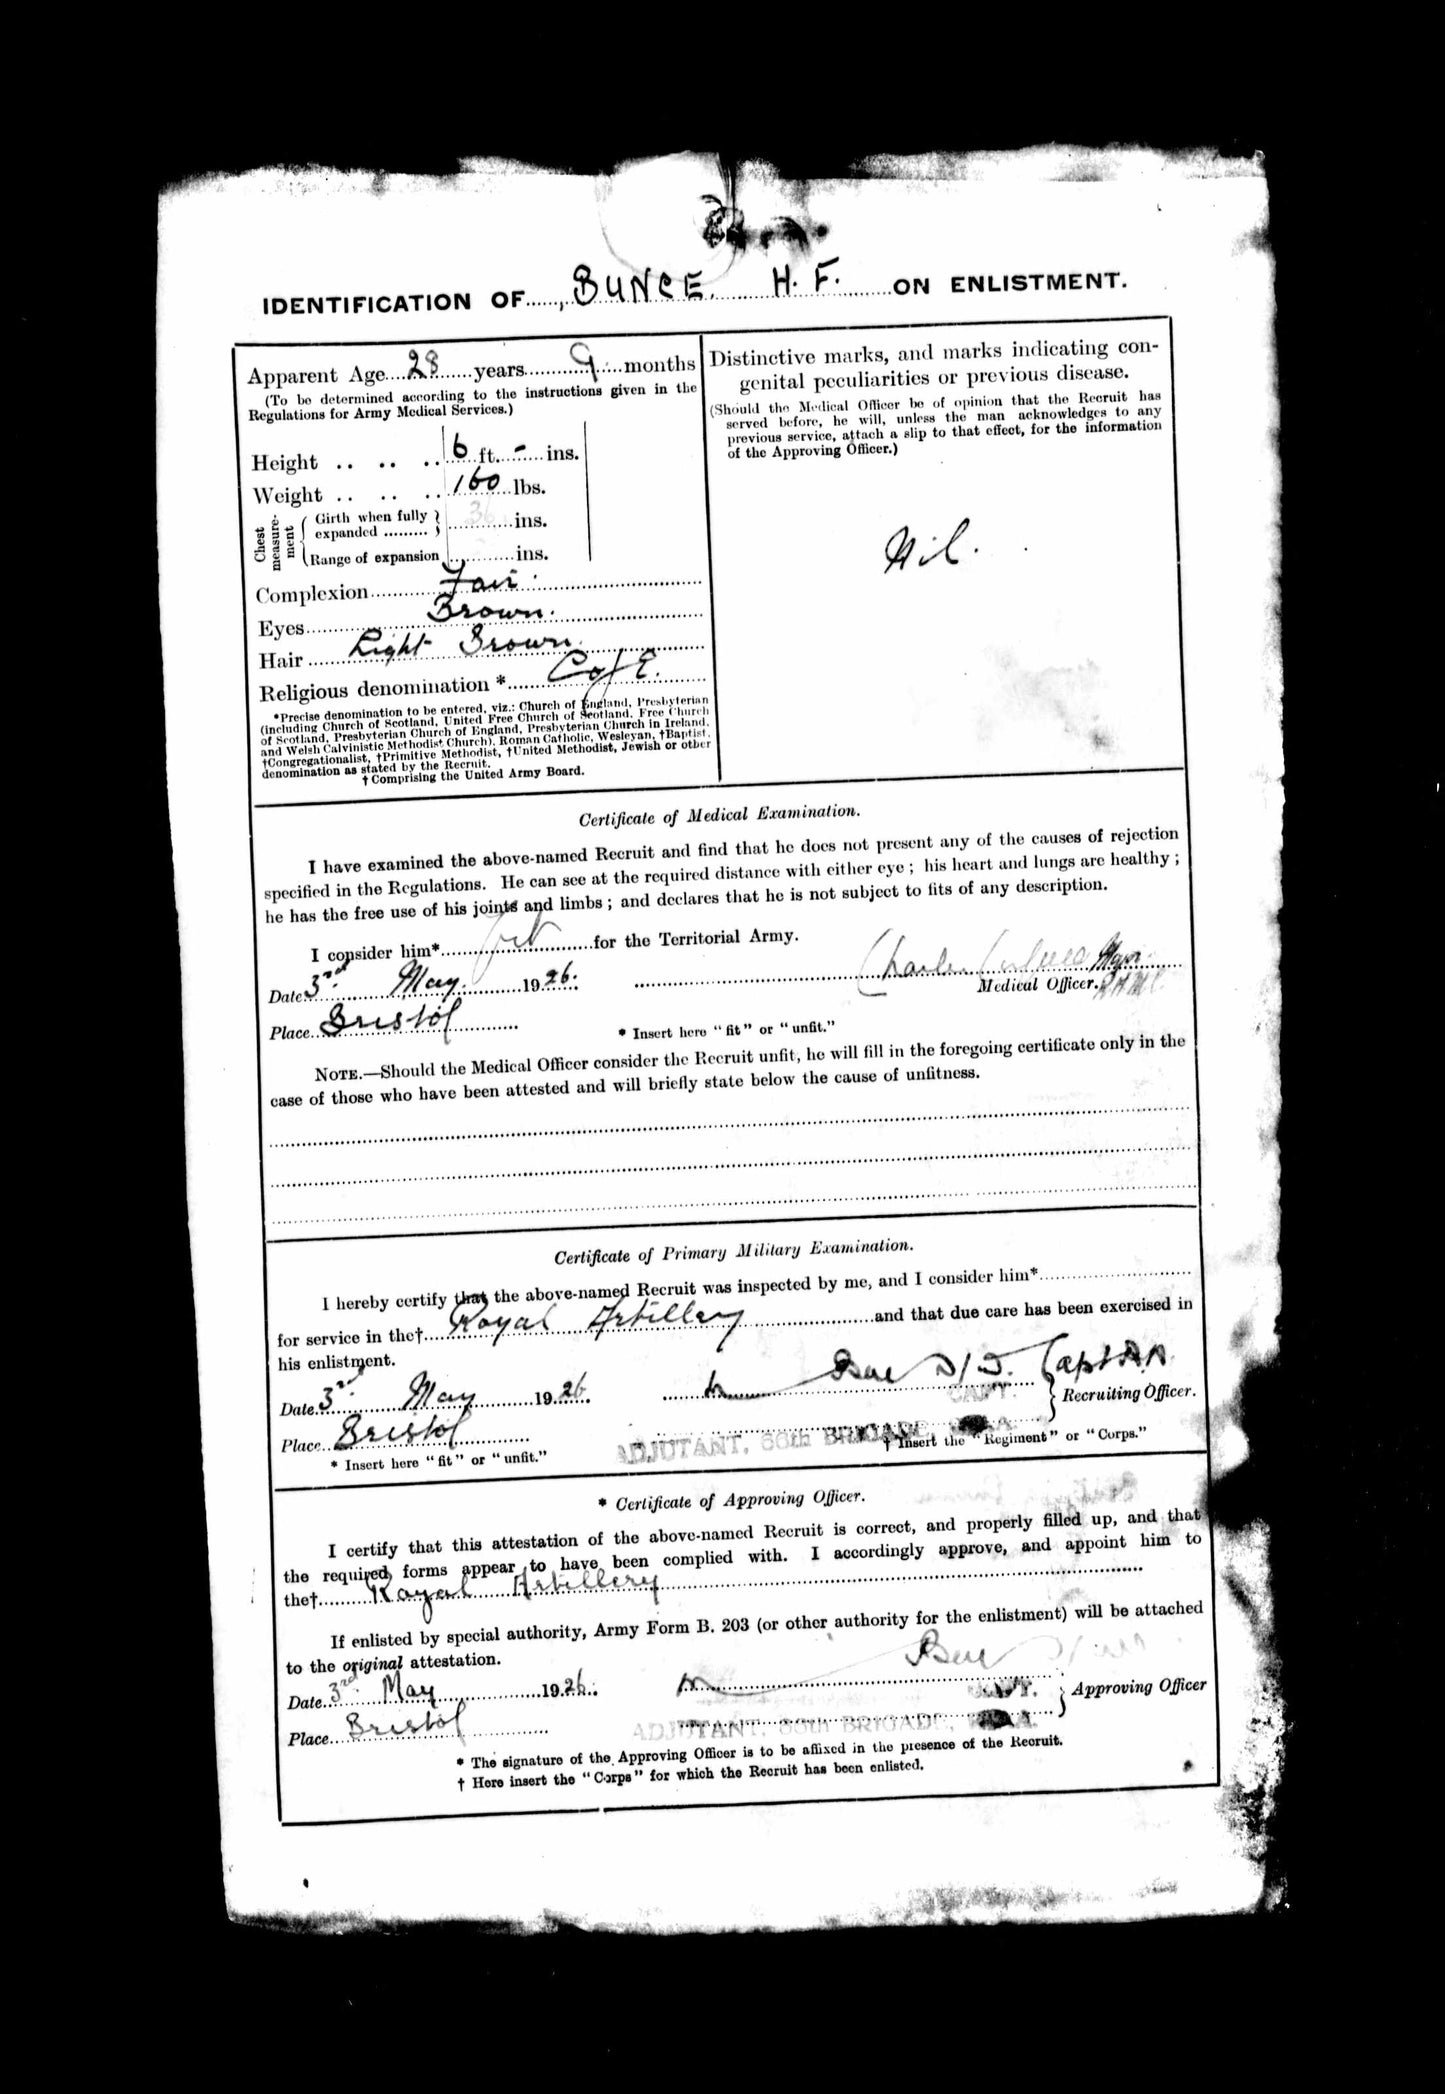 IDENTIFICATION OF BUNCE. H. F. ON ENLISTMENT.
Apparent Age 28 years 9 months
(To be determined according to the instructions given in the
Regulations for Army Medical Services.)
Height .. .. .. 6 ft. - ins.
Weight .. .. .. 160 lbs.
Chest measure-ment
Girth when fully expanded ......... 36 ins.
Range of expansion ins.
Complexion Fair.
Eyes Brown.
Hair Light Brown.
Religious denomination * C of E.
*Precise denomination to be entered, viz.: Church of England, Presbyterian
(including Church of Scotland, United Free Church of Scotland, Free Church
of Scotland, Presbyterian Church of England, Presbyterian Church in Ireland,
and Welsh Calvinistic Methodist Church), Roman Catholic, Wesleyan, †Baptist,
†Congregationalist, †Primitive Methodist, †United Methodist, Jewish or other
denomination as stated by the Recruit.
† Comprising the United Army Board.
Distinctive marks, and marks indicating con-
genital peculiarities or previous disease.
(Should the Medical Officer be of opinion that the Recruit has
served before, he will, unless the man acknowledges to any
previous service, attach a slip to that effect, for the information
of the Approving Officer.)
Nil.
Certificate of Medical Examination.
I have examined the above-named Recruit and find that he does not present any of the causes of rejection
specified in the Regulations. He can see at the required distance with either eye; his heart and lungs are healthy;
he has the free use of his joints and limbs; and declares that he is not subject to fits of any description.
I consider him* fit for the Territorial Army.
Date 3rd. May. 1926. Charles
Medical Officer.
Place Bristol
* Insert here "fit" or "unfit."
NOTE.—Should the Medical Officer consider the Recruit unfit, he will fill in the foregoing certificate only in the
case of those who have been attested and will briefly state below the cause of unfitness.
Certificate of Primary Military Examination.
I hereby certify that the above-named Recruit was inspected by me, and I consider him*
for service in the† Royal Artillery and that due care has been exercised in
his enlistment.
Date 3rd May 1926. Capt RA
CAPT.
Recruiting Officer.
Place Bristol
ADJUTANT, 66th BRIGADE,
* Insert here "fit" or "unfit."
† Insert the "Regiment" or "Corps."
* Certificate of Approving Officer.
I certify that this attestation of the above-named Recruit is correct, and properly filled up, and that
the required forms appear to have been complied with. I accordingly approve, and appoint him to
the† Royal Artillery
If enlisted by special authority, Army Form B. 203 (or other authority for the enlistment) will be attached
to the original attestation.
Date 3rd. May 1926.
CAPT.
Approving Officer
Place Bristol
ADJUTANT, 66th BRIGADE,
* The signature of the Approving Officer is to be affixed in the presence of the Recruit.
† Here insert the "Corps" for which the Recruit has been enlisted.